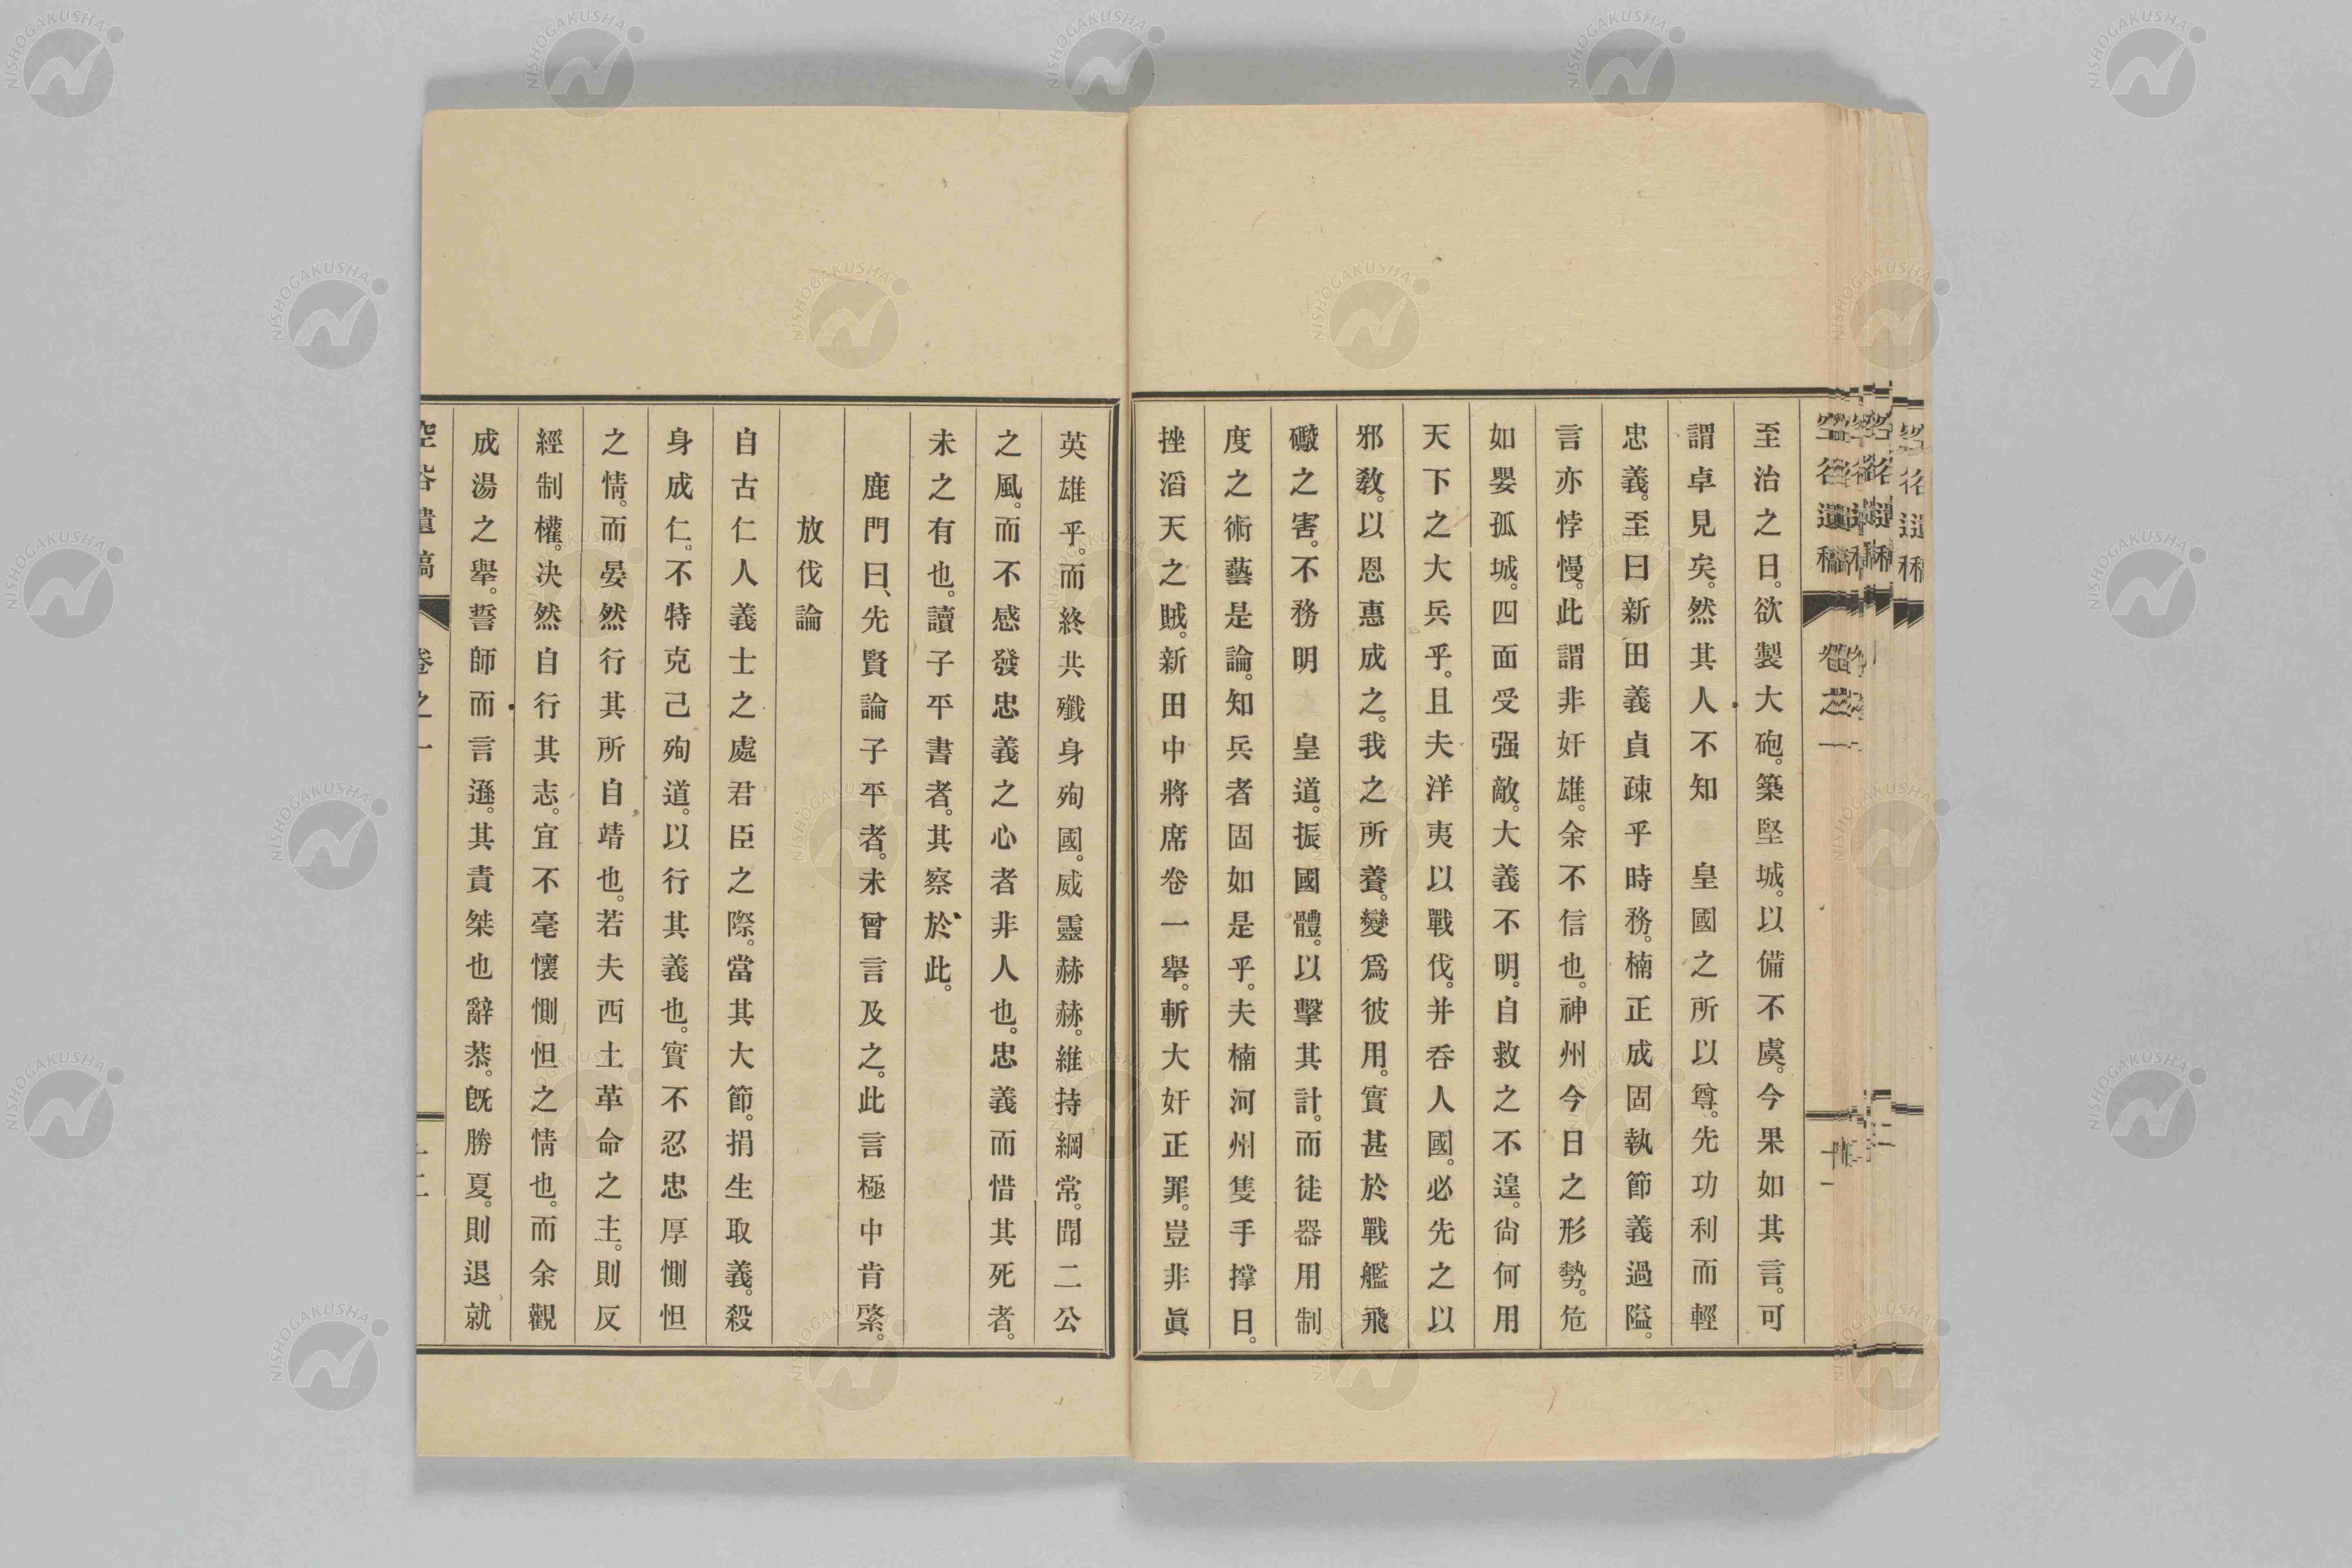 至治之日。欲製大砲。築堅城。以備不虞。今果如其言。可
謂卓見矣。然其人不知　皇國之所以尊。先功利而輕
忠義。至曰新田義貞疎乎時務。楠正成固執節義過隘。
言亦悖慢。此謂非奸雄。余不信也。神州今日之形勢。危
如嬰孤城。四面受强敵。大義不明。自救之不遑。尙何用
天下之大兵乎。且夫洋夷以戰伐。并呑人國。必先之以
邪敎。以恩惠成之。我之所養。變爲彼用。實甚於戰艦飛
礮之害。不務明　皇道。振國體。以擊其計。而徒器用制
度之術藝是論。知兵者固如是乎。夫楠河州隻手撑日。
挫滔天之賊。新田中將席卷一擧。斬大奸正罪。豈非眞
英雄乎。而終共殲身殉國。威靈赫赫。維持綱常。聞二公
之風。而不感發忠義之心者非人也。忠義而惜其死者。
未之有也。讀子平書者。其察於此。
鹿門曰、先賢論子平者。未曾言及之。此言極中肯綮。
放伐論
自古仁人義士之處君臣之際。當其大節。捐生取義。殺
身成仁。不特克己殉道。以行其義也。實不忍忠厚惻怛
之情。而晏然行其所自靖也。若夫西土革命之主。則反
經制權。決然自行其志。宜不毫懷惻怛之情也。而余觀
成湯之擧。誓師而言遜。其責桀也辭恭。旣勝夏。則退就
空谷遺稿　卷之一
NISHOGAKUSHA